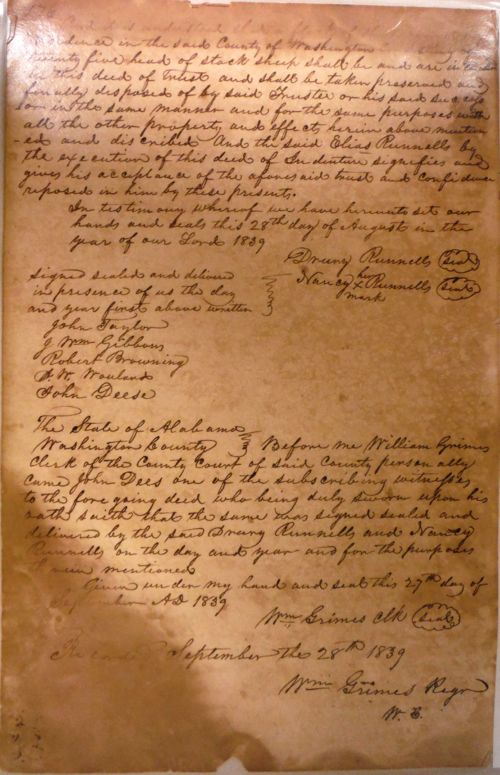 dence in the said County of Washington
twenty five head of stock sheep shall be and are
in this deed of Trust and shall be taken preserved and
finally disposed of by said Trustee or his said succes
sor in the same manner and for the same purposes with
all the other property and effects herein above mention
ed and discribed And the said Elias Runnells by
the execution of this deed of Indenture signifies and
gives his acceptance of the aforesaid trust and confidence
reposed in him by these presents.
In testimony whereof we have hereunto set our
hands and seals this 28th day of August in the
year of our Lord 1839
Drury Runnells seal
Nancy her x mark Runnells seal
signed sealed and delivered
in presence of us the day
and year first above written
John Taylor
J Wm Gibbons
Robert Browning
John Deese
The State of Alabama
Washington County Before me William Grimes
Clerk of the County Court of said County personally
came John Dees one of the subscribing witnesses
to the fore going deed who being duly sworn upon his
oath saith that the same was signed sealed and
delivered by the said Drury Runnells and Nancy
Runnells on the day and year and for the purposes
therein mentioned
Given under my hand and seal this 27th day of
September AD 1839
Wm Grimes Clk seal
Recorded September the 28th 1839
Wm Grimes Regr
W. C.